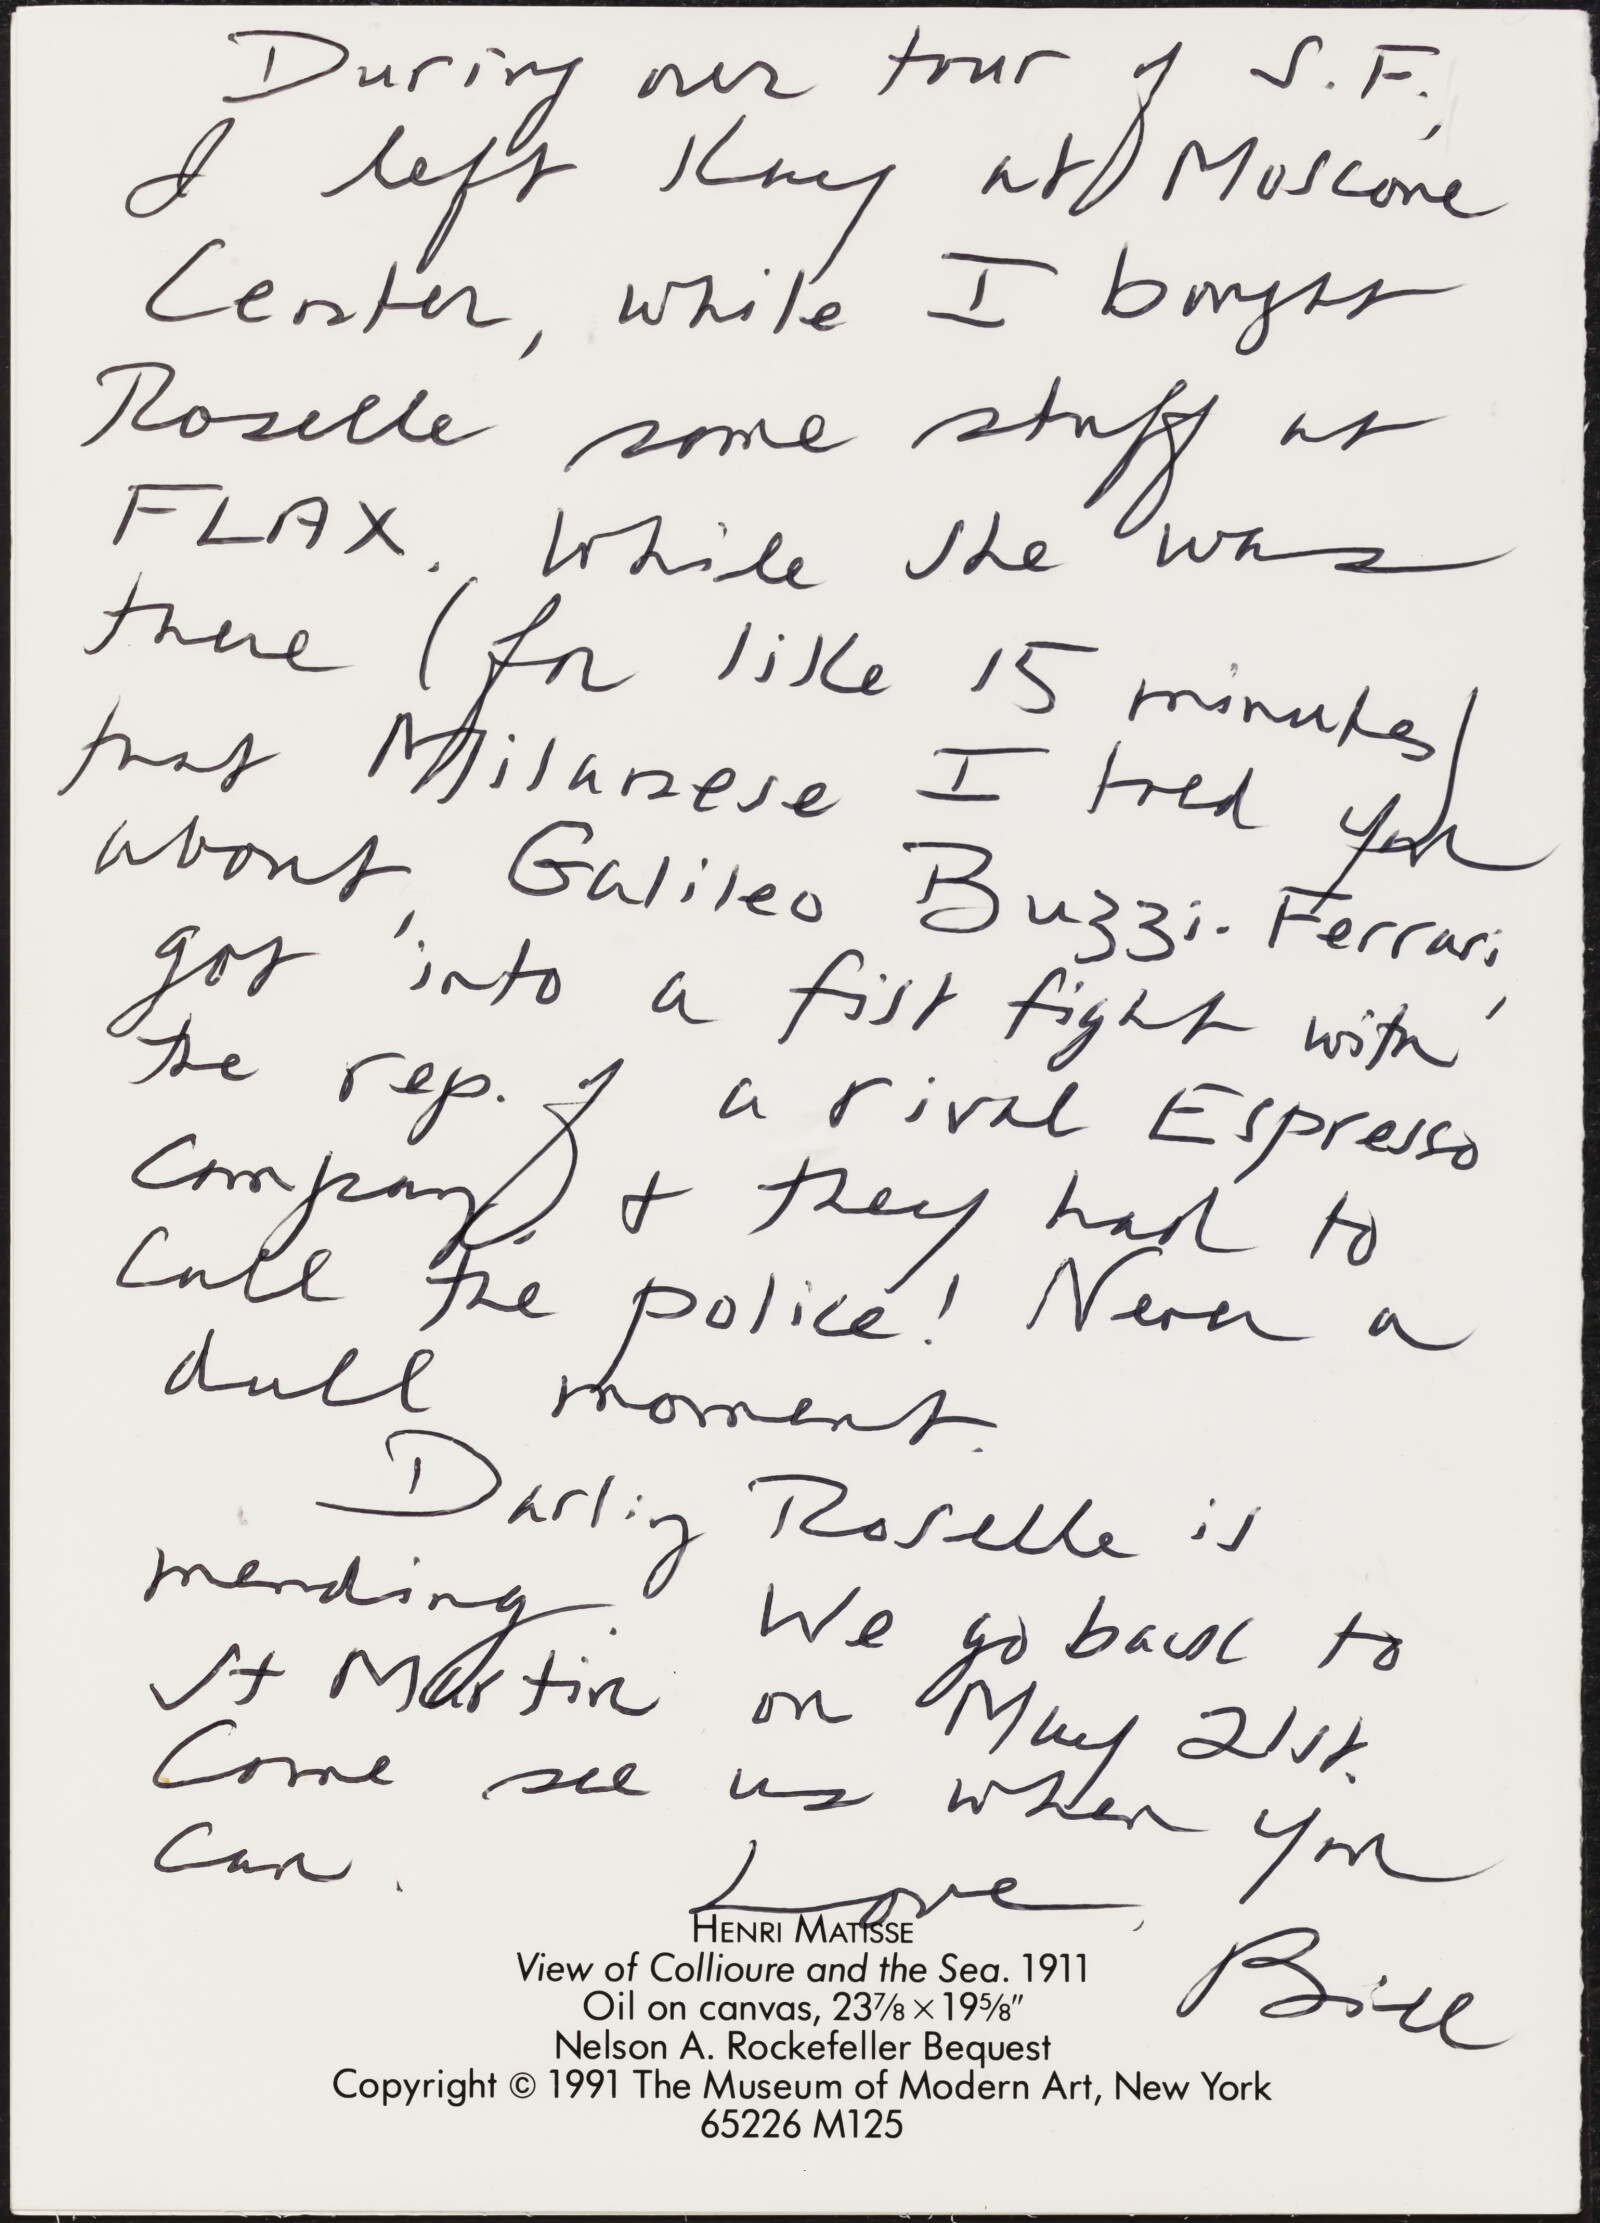 During our tour of S.F.,
I left Kay at Moscone
Center, while I bought
Roselle some stuff at
FLAX. While she was
there (for like 15 minutes)
that Milanese I told you
about, Galileo Buzzi-Ferrari,
got into a fist fight with
the rep. of a rival Espresso
Company & they had to
call the police! Never a
dull moment.
Darling Roselle is
mending. We go back to
St Martin on May 21st.
Come see us when you
can.
Love,
Bill
HENRI MATISSE
View of Collioure and the Sea. 1911
Oil on canvas, 23⅞ × 19⅝"
Nelson A. Rockefeller Bequest
Copyright © 1991 The Museum of Modern Art, New York
65226 M125